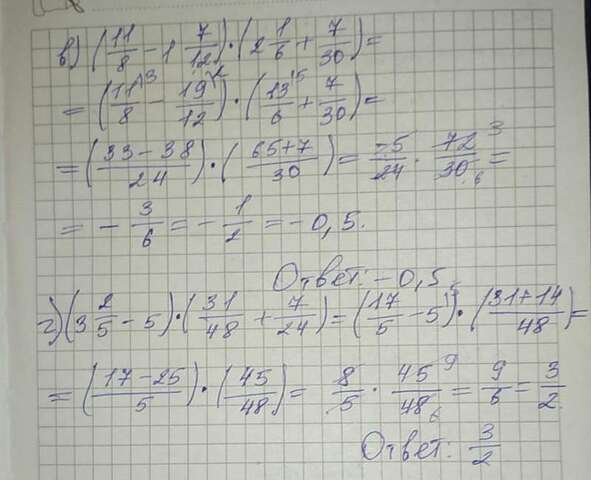 в) (11/8 - 1 7/12) · (2 1/6 + 7/30) =
= (11/8 \3 - 19/12 \2) · (13/6 \5 + 7/30) =
= (33-38/24) · (65+7/30) = -5/24 · 72/30 3 6 =
= - 3/6 = - 1/2 = -0,5.
Ответ: -0,5
г) (3 2/5 - 5) · (31/48 + 7/24) = (17/5 - 5 \5) · (31+14/48) =
= (17-25/5) · (45/48) = 8/5 · 45/48 9 6 = 9/6 = 3/2.
Ответ: 3/2